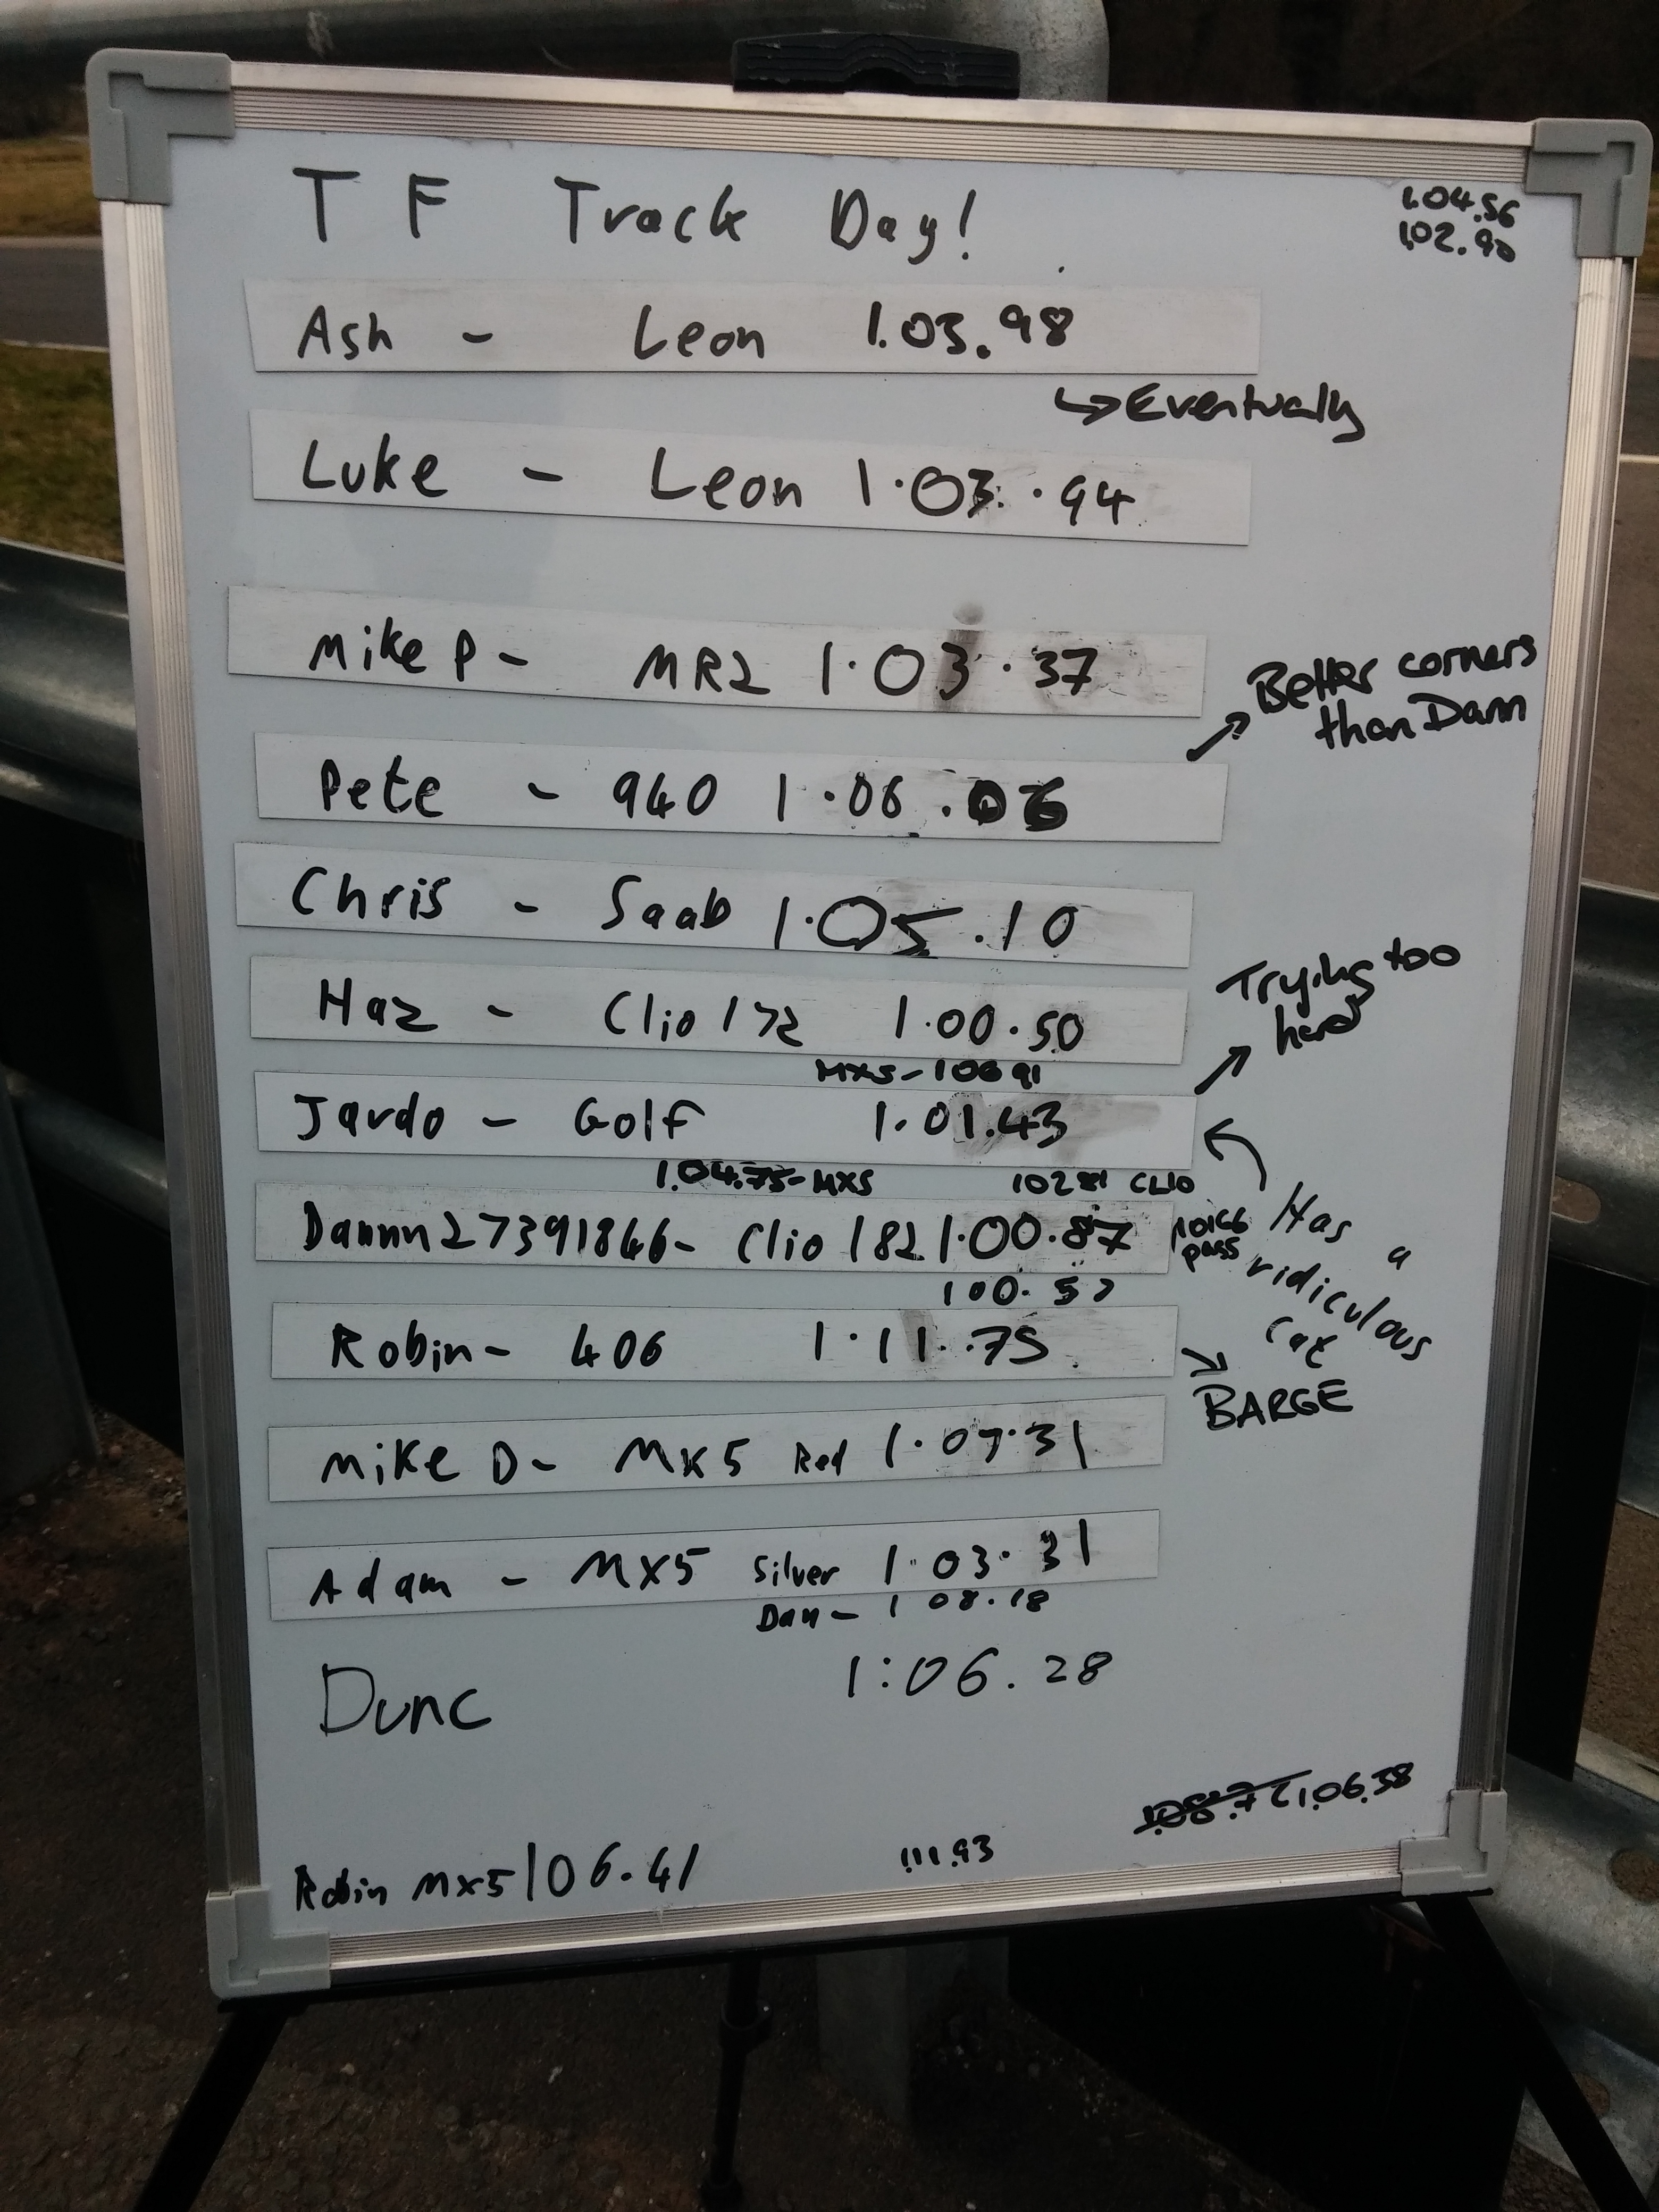 T F Track Day!
1.04.56
1.02.90
Ash - Leon 1.03.98
↳ Eventually
Luke - Leon 1.03.94
Mike P - MR2 1.03.37
Better corners
than Dann
Pete - 940 1.06.06
Chris - Saab 1.05.10
Haz - Clio 172 1.00.50
Trying too
hard
MX5 - 106 91
Jardo - Golf 1.01.43
1.04.75 - MX5
102 81 CLIO
Dannn27391846 - Clio 182 1.00.87
pass
Has a
ridiculous
cat
100.57
Robin - 406 1.11.75
BARGE
Mike D - MX5 Red 1.07.31
Adam - MX5 Silver 1.03.31
Dan - 1 08.18
Dunc 1:06.28
1.06.38
Robin MX5 106.41
1.11.93